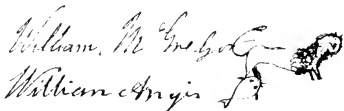 William, McGregor
William Angis